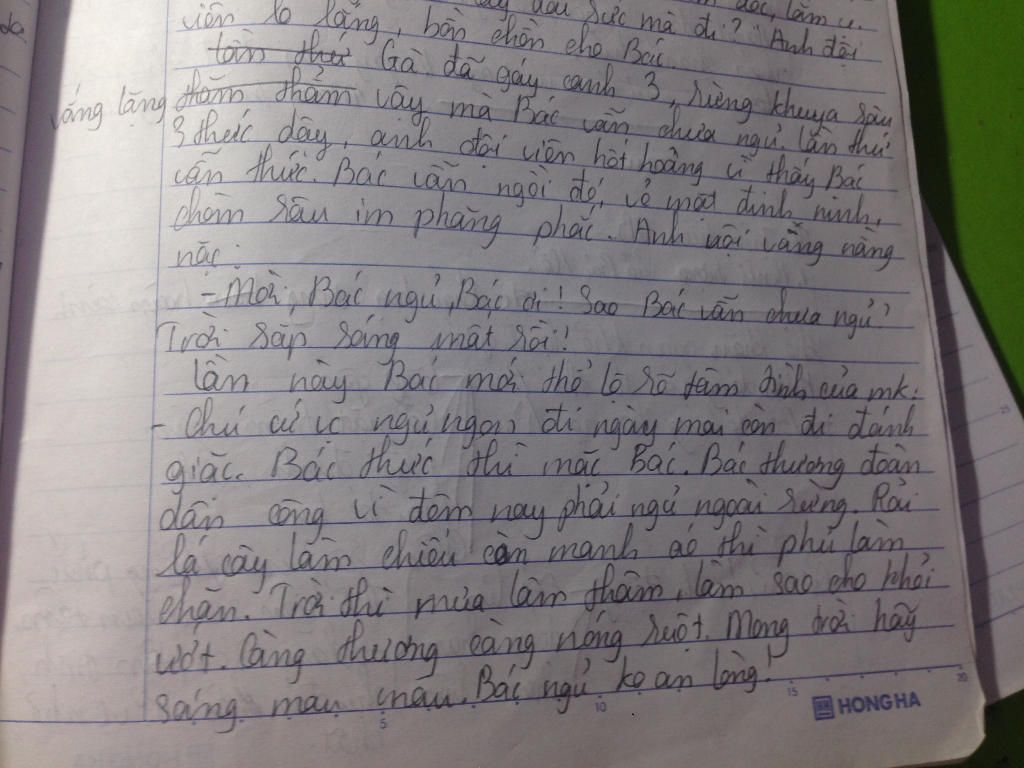 sức mà đi? Anh đội
viên lo lắng, bồn chồn cho Bác
Gà đã gáy canh 3, rừng khuya sâu
vắng lặng thăm thẳm vậy mà Bác vẫn chưa ngủ. Lần thứ
3 thức dậy, anh đội viên hốt hoảng vì thấy Bác
vẫn thức. Bác vẫn ngồi đó, vẻ mặt đinh ninh,
chòm râu im phăng phắc. Anh vội vàng nằng
nặc:
- Mời, Bác ngủ, Bác ơi! Sao Bác vẫn chưa ngủ?
Trời sắp sáng mất rồi!
Lần này Bác mới thổ lộ rõ tâm tình của mk.
- Chú cứ vc ngủ ngon, đi ngày mai còn đi đánh
giặc. Bác thức thì mặc Bác. Bác thương đoàn
dân công vì đêm nay phải ngủ ngoài rừng. Rải
lá cây làm chiếu còn manh áo thì phủ làm
chăn. Trời thì mưa lâm thâm, làm sao cho khỏi
ướt. Càng thương càng nóng ruột. Mong trời hãy
sáng mau mau. Bác ngủ ko an lòng!
5 10 15 20
HONG HA